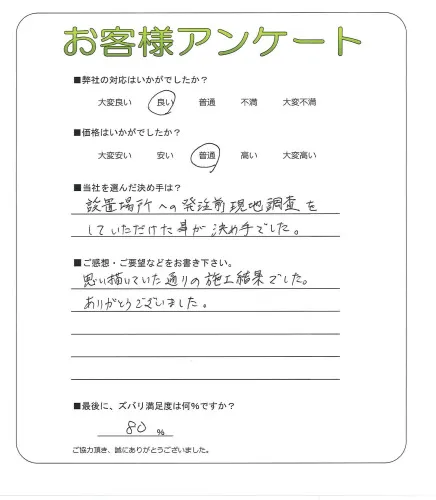 お客様アンケート
■弊社の対応はいかがでしたか？
大変良い 良い 普通 不満 大変不満
■価格はいかがでしたか？
大変安い 安い 普通 高い 大変高い
■当社を選んだ決め手は？
設置場所への発注前現地調査を
していただけた事が決め手でした。
■ご感想・ご要望などをお書き下さい。
思い描いていた通りの施工結果でした。
ありがとうございました。
■最後に、ズバリ満足度は何％ですか？
80 %
ご協力頂き、誠にありがとうございました。